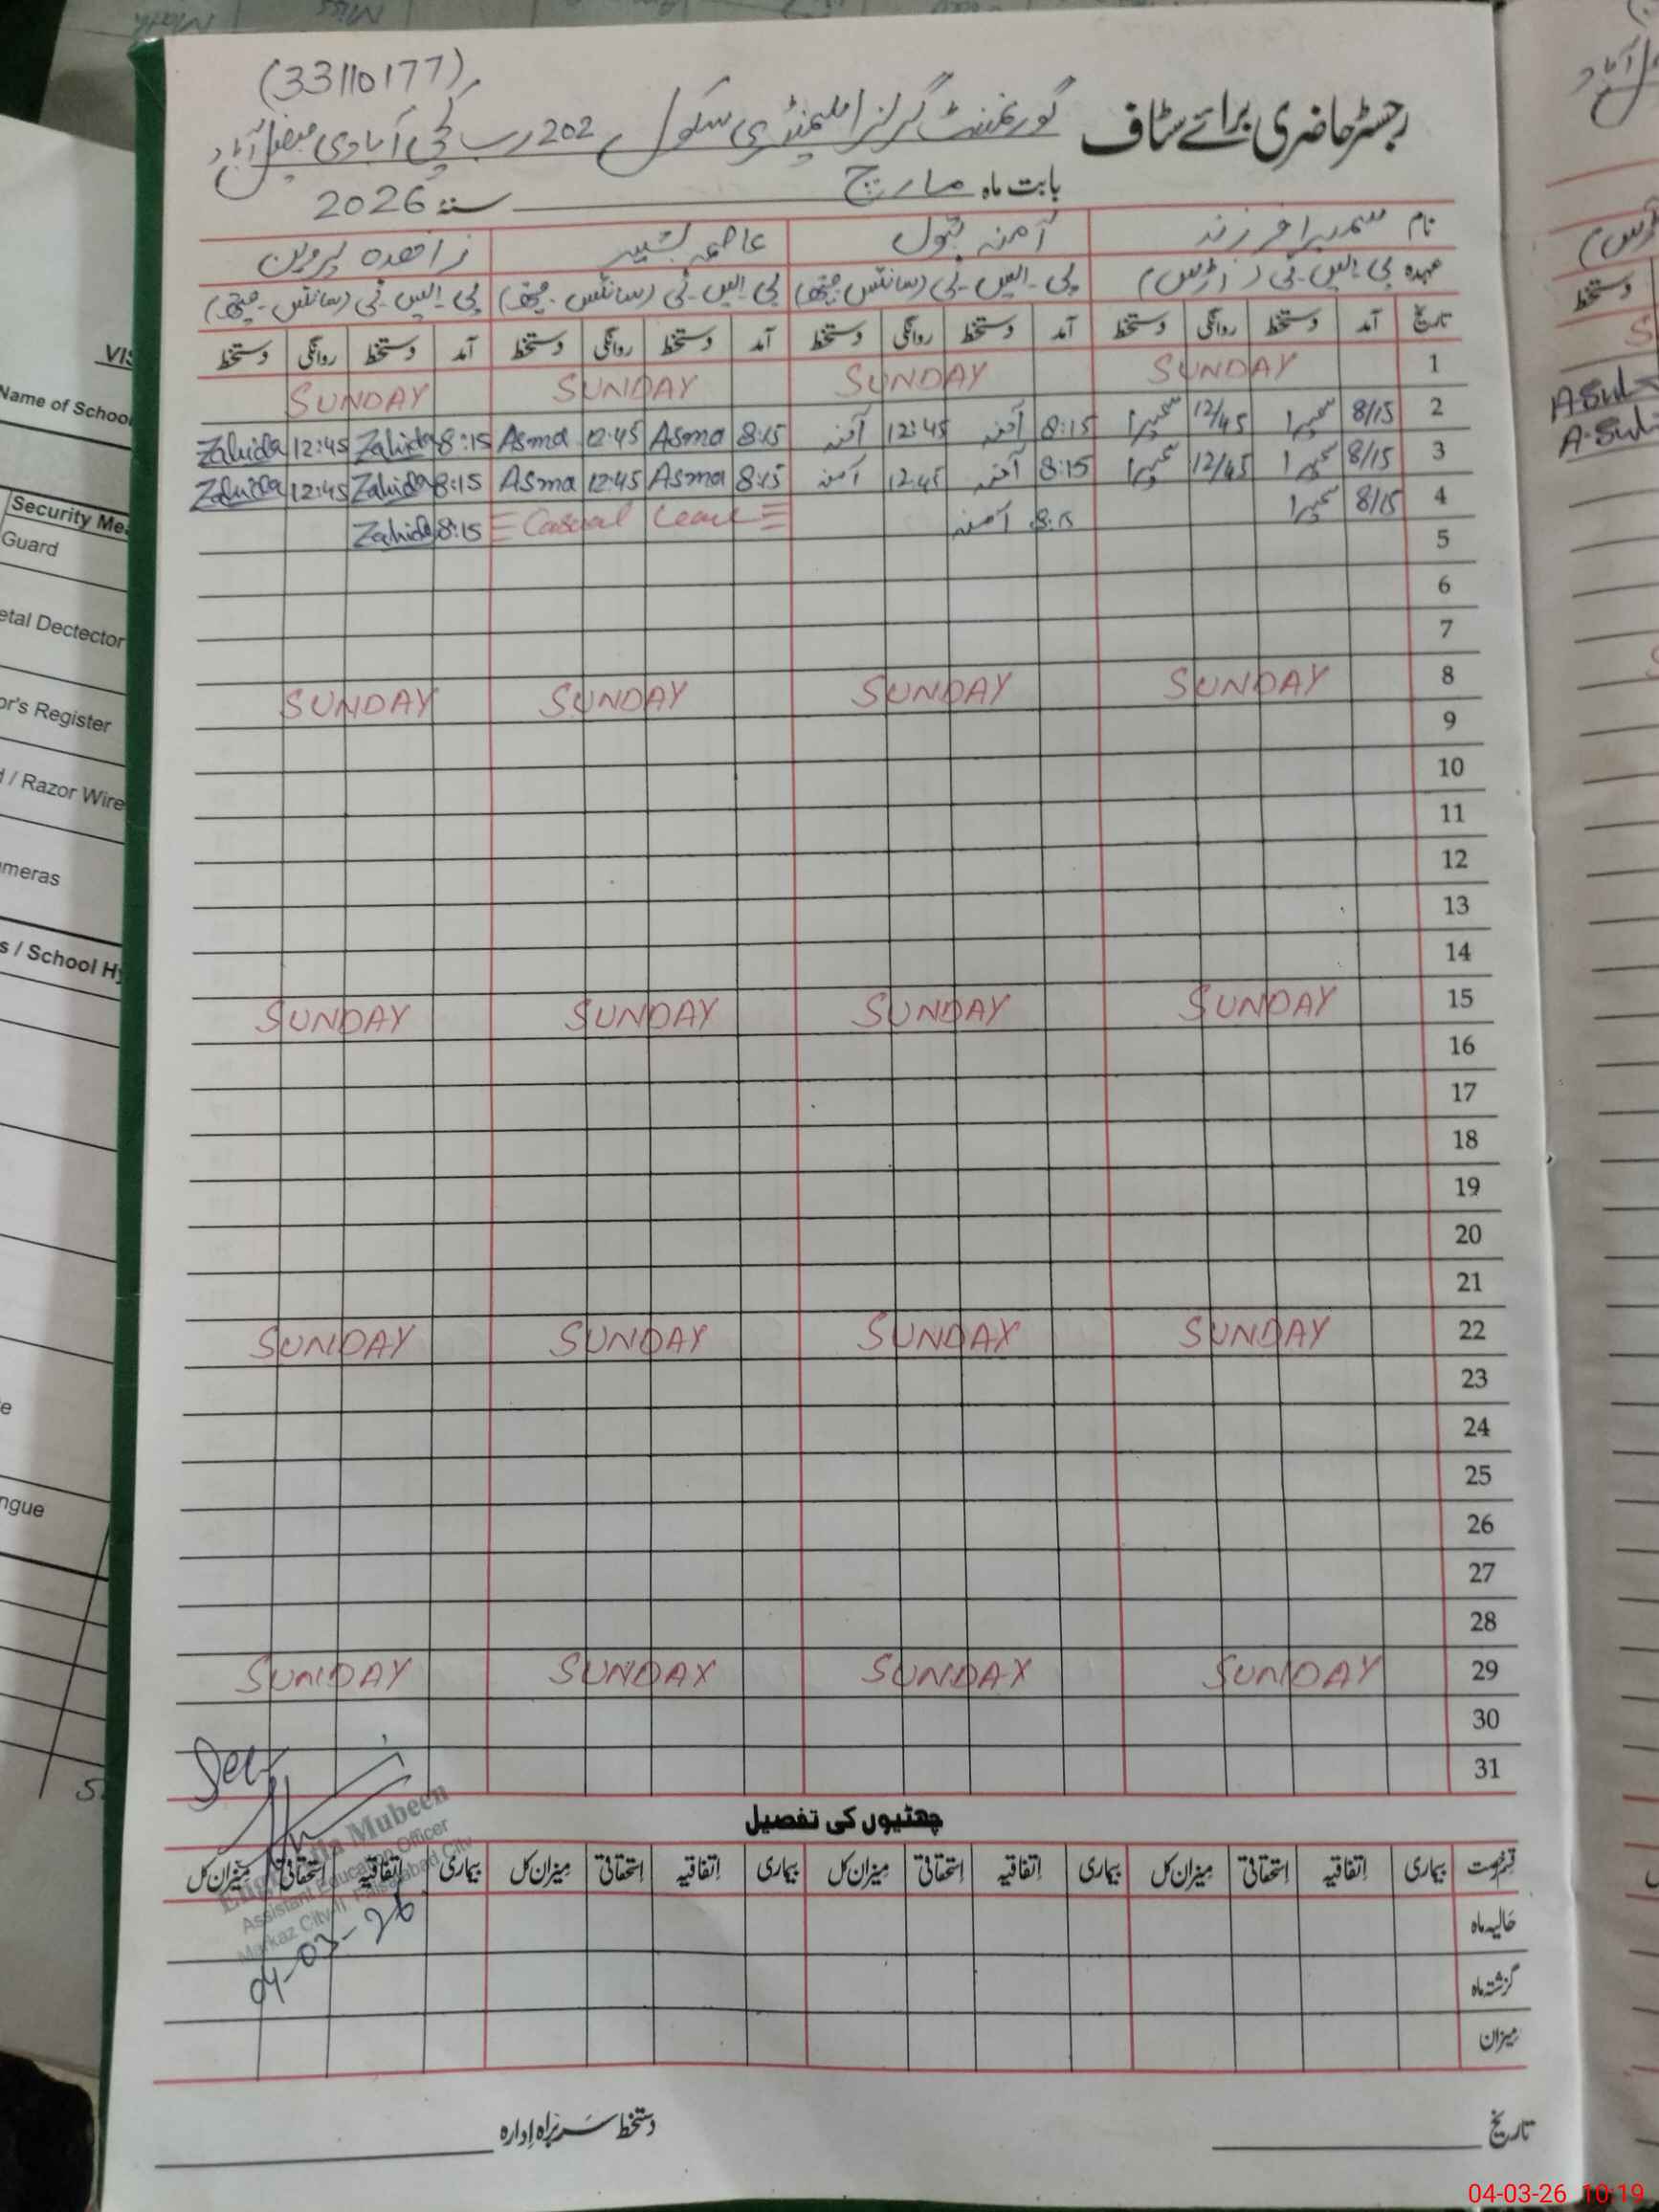 (33110177)
رجسٹر حاضری برائے سٹاف گورنمنٹ گرلز ایلیمنٹری سکول 202 رب کچی آبادی فیصل آباد
بابت ماہ مارچ سنہ 2026
نام سمیرا فرزند آمنہ بتول عاصمہ بشیر زاھدہ پروین
عہدہ پی۔ایس۔ٹی (آرٹس) پی۔ایس۔ٹی (سائنس۔میتھ) پی۔ایس۔ٹی (سائنس۔میتھ) پی۔ایس۔ٹی (سائنس۔میتھ)
تاریخ آمد دستخط روانگی دستخط آمد دستخط روانگی دستخط آمد دستخط روانگی دستخط آمد دستخط روانگی دستخط
1 SUNDAY SUNDAY SUNDAY SUNDAY
2 8/15 سمیرا 12/45 سمیرا 8:15 آمنہ 12:45 آمنہ 8:15 Asma 12:45 Asma 8:15 Zahida 12:45 Zahida
3 8/15 سمیرا 12/45 سمیرا 8:15 آمنہ 12:45 آمنہ 8:15 Asma 12:45 Asma 8:15 Zahida 12:45 Zahida
4 8/15 سمیرا 8:15 آمنہ Casual Leave 8:15 Zahida
5
6
7
8 SUNDAY SUNDAY SUNDAY SUNDAY
9
10
11
12
13
14
15 SUNDAY SUNDAY SUNDAY SUNDAY
16
17
18
19
20
21
22 SUNDAY SUNDAY SUNDAY SUNDAY
23
24
25
26
27
28
29 SUNDAY SUNDAY SUNDAY SUNDAY
30
31
چھٹیوں کی تفصیل
قسم رخصت بیماری اتفاقیہ استحقاقی میزان کل بیماری اتفاقیہ استحقاقی میزان کل بیماری اتفاقیہ استحقاقی میزان کل بیماری اتفاقیہ استحقاقی میزان کل
حالیہ ماہ
گزشتہ ماہ
میزان
Mubeen
Assistant Education Officer
Markaz City-II Faisalabad City
04-03-26
تاریخ
دستخط سربراہ ادارہ
Name of School
Security Me
Guard
etal Dectector
or's Register
/ Razor Wire
meras
s / School H
ngue
دستخط
A.Sul
04-03-26 10:19